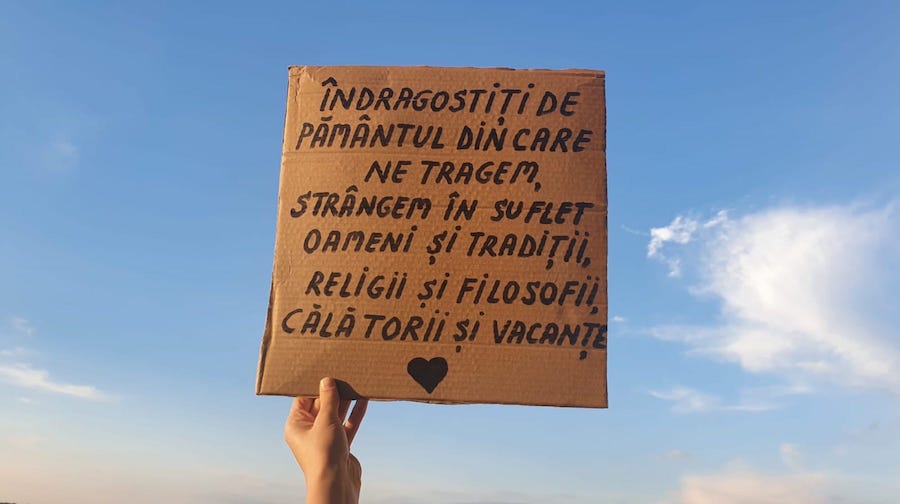 ÎNDRAGOSTIȚI DE
PĂMÂNTUL DIN CARE
NE TRAGEM,
STRÂNGEM ÎN SUFLET
OAMENI ȘI TRADIȚII,
RELIGII ȘI FILOSOFII,
CĂLĂTORII ȘI VACANȚE